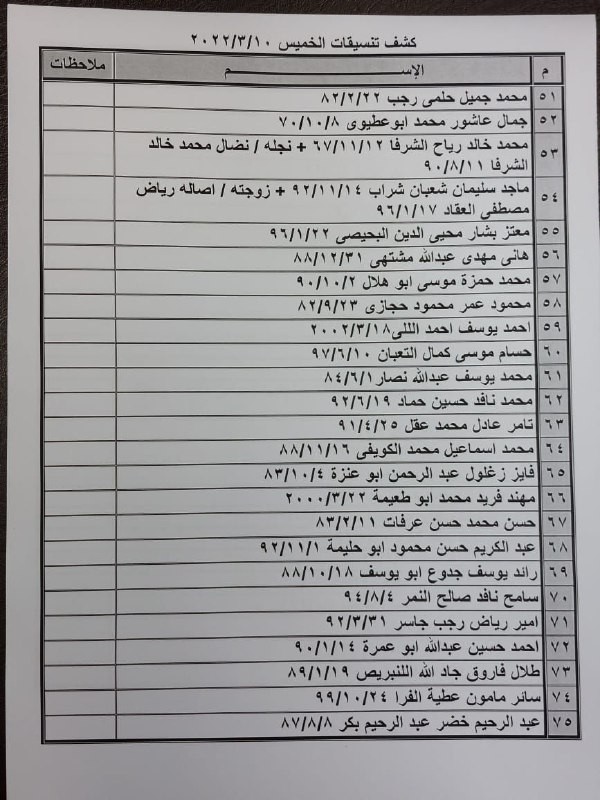 كشف تنسيقات الخميس ٢٠٢٢/٣/١٠
م الإســـم ملاحظات
٥١ محمد جميل حلمى رجب ٨٢/٢/٢٢
٥٢ جمال عاشور محمد ابوعطيوى ٧٠/١٠/٨
٥٣ محمد خالد رباح الشرفا ٦٧/١١/١٢ + نجله / نضال محمد خالد
الشرفا ٩٠/٨/١١
٥٤ ماجد سليمان شعبان شراب ٩٢/١١/١٤ + زوجته / اصاله رياض
مصطفى العقاد ٩٦/١/١٧
٥٥ معتز بشار محيى الدين البحيصى ٩٦/١/٢٢
٥٦ هانى مهدى عبدالله مشتهى ٨٨/١٢/٣١
٥٧ محمد حمزة موسى ابو هلال ٩٠/١٠/٢
٥٨ محمود عمر محمود حجازى ٨٢/٩/٢٣
٥٩ احمد يوسف احمد اللى ٢٠٠٢/٣/١٨
٦٠ حسام موسى كمال التعبان ٩٧/٦/١٠
٦١ محمد يوسف عبدالله نصار ٨٤/٦/١
٦٢ محمد نافد حسين حماد ٩٢/٦/١٩
٦٣ تامر عادل محمد عقل ٩١/٤/٢٥
٦٤ محمد اسماعيل محمد الكويفى ٨٨/١١/١٦
٦٥ فايز زغلول عبد الرحمن ابو عنزة ٨٣/١٠/٤
٦٦ مهند فريد محمد ابو طعيمة ٢٠٠٠/٣/٢٢
٦٧ حسن محمد حسن عرفات ٨٣/٢/١١
٦٨ عبد الكريم حسن محمود ابو حليمة ٩٢/١١/١
٦٩ رائد يوسف جدوع ابو يوسف ٨٨/١٠/١٨
٧٠ سامح نافد صالح النمر ٩٤/٨/٤
٧١ امير رياض رجب جاسر ٩٢/٣/٣١
٧٢ احمد حسين عبدالله ابو عمرة ٩٠/١/١٤
٧٣ طلال فاروق جاد الله اللنبريص ٨٩/١/١٩
٧٤ سائر مامون عطية الفرا ٩٩/١٠/٢٤
٧٥ عبد الرحيم خضر عبد الرحيم بكر ٨٧/٨/٨